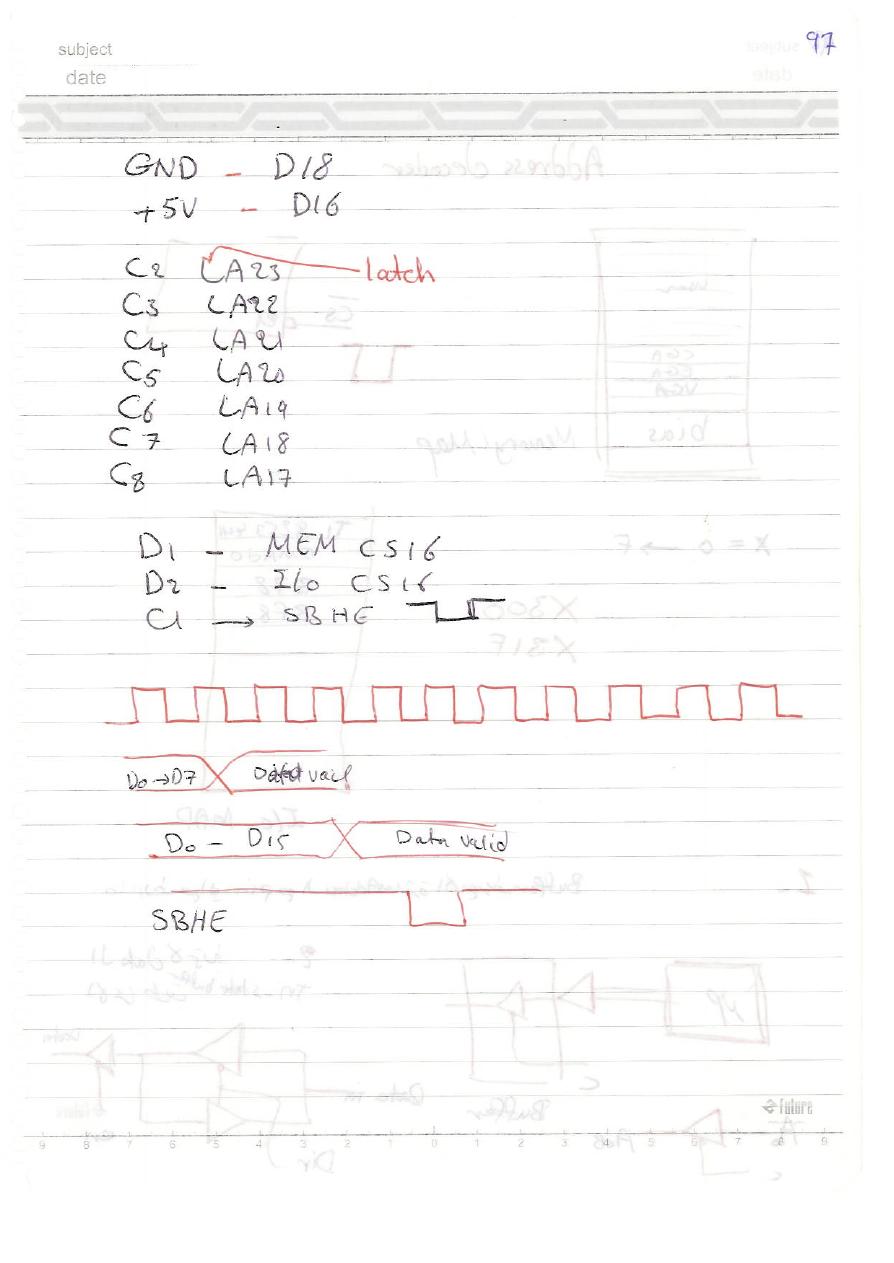 97
subject
date
GND - D18
+5V - D16
C2 LA23 latch
C3 LA22
C4 LA21
C5 LA20
C6 LA19
C7 LA18
C8 LA17
D1 - MEM CS16
D2 - I/O CS16
C1 → SBHE
D0→D7 Data
D0 - D15 Data valid
SBHE
future
9 8 7 6 5 4 3 2 1 0 1 2 3 4 5 6 7 8 9